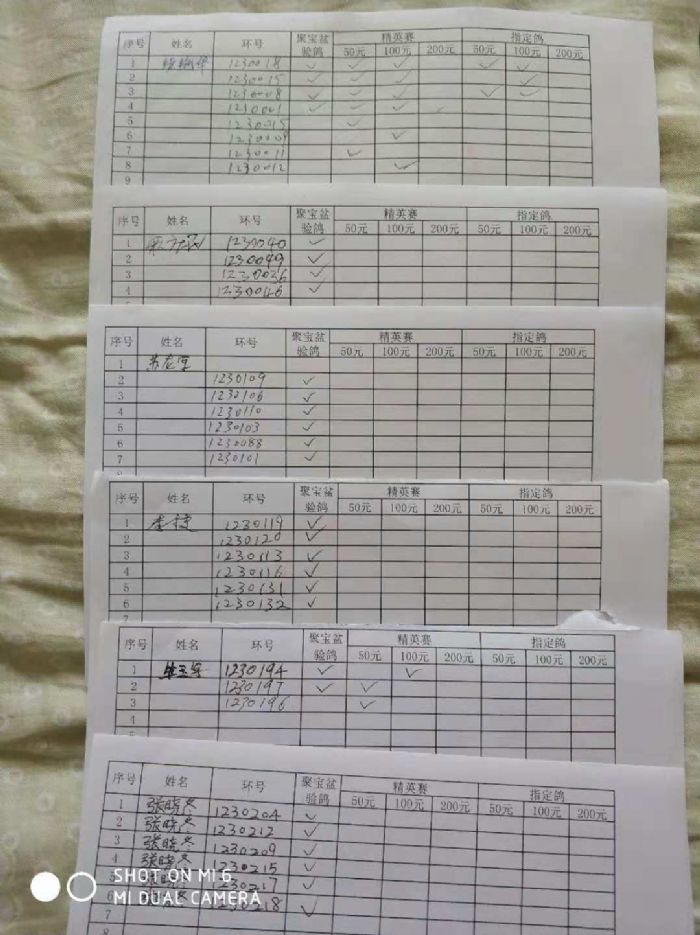 序号 姓名 环号 聚宝盆验鸽 精英赛 指定鸽
50元 100元 200元 50元 100元 200元
1 1230018 ✓ ✓ ✓ ✓ ✓
2 1230015 ✓ ✓ ✓ ✓
3 1230008 ✓ ✓ ✓ ✓ ✓
4 1230001 ✓ ✓ ✓ ✓
5 1230015 ✓
6 1230009 ✓
7 1230011 ✓
8 1230012 ✓
9
序号 姓名 环号 聚宝盆验鸽 精英赛 指定鸽
50元 100元 200元 50元 100元 200元
1 1230040 ✓
2 1230049 ✓
3 1230036 ✓
4 1230046 ✓
序号 姓名 环号 聚宝盆验鸽 精英赛 指定鸽
50元 100元 200元 50元 100元 200元
1
2 1230109 ✓
3 1230106 ✓
4 1230110 ✓
5 1230103 ✓
6 1230088 ✓
7 1230101 ✓
序号 姓名 环号 聚宝盆验鸽 精英赛 指定鸽
50元 100元 200元 50元 100元 200元
1 李捷 1230119 ✓
2 1230120 ✓
3 1230113 ✓
4 1230116 ✓
5 1230131 ✓
6 1230132 ✓
7
序号 姓名 环号 聚宝盆验鸽 精英赛 指定鸽
50元 100元 200元 50元 100元 200元
1 1230194 ✓ ✓
2 1230197 ✓ ✓
3 1230196 ✓
4
5
序号 姓名 环号 聚宝盆验鸽 精英赛 指定鸽
50元 100元 200元 50元 100元 200元
1 张晓冬 1230204 ✓
2 张晓冬 1230212 ✓
3 张晓冬 1230209 ✓
4 张晓冬 1230215 ✓
5 1230217 ✓
6 1230218 ✓
7
8
SHOT ON MI 6
MI DUAL CAMERA